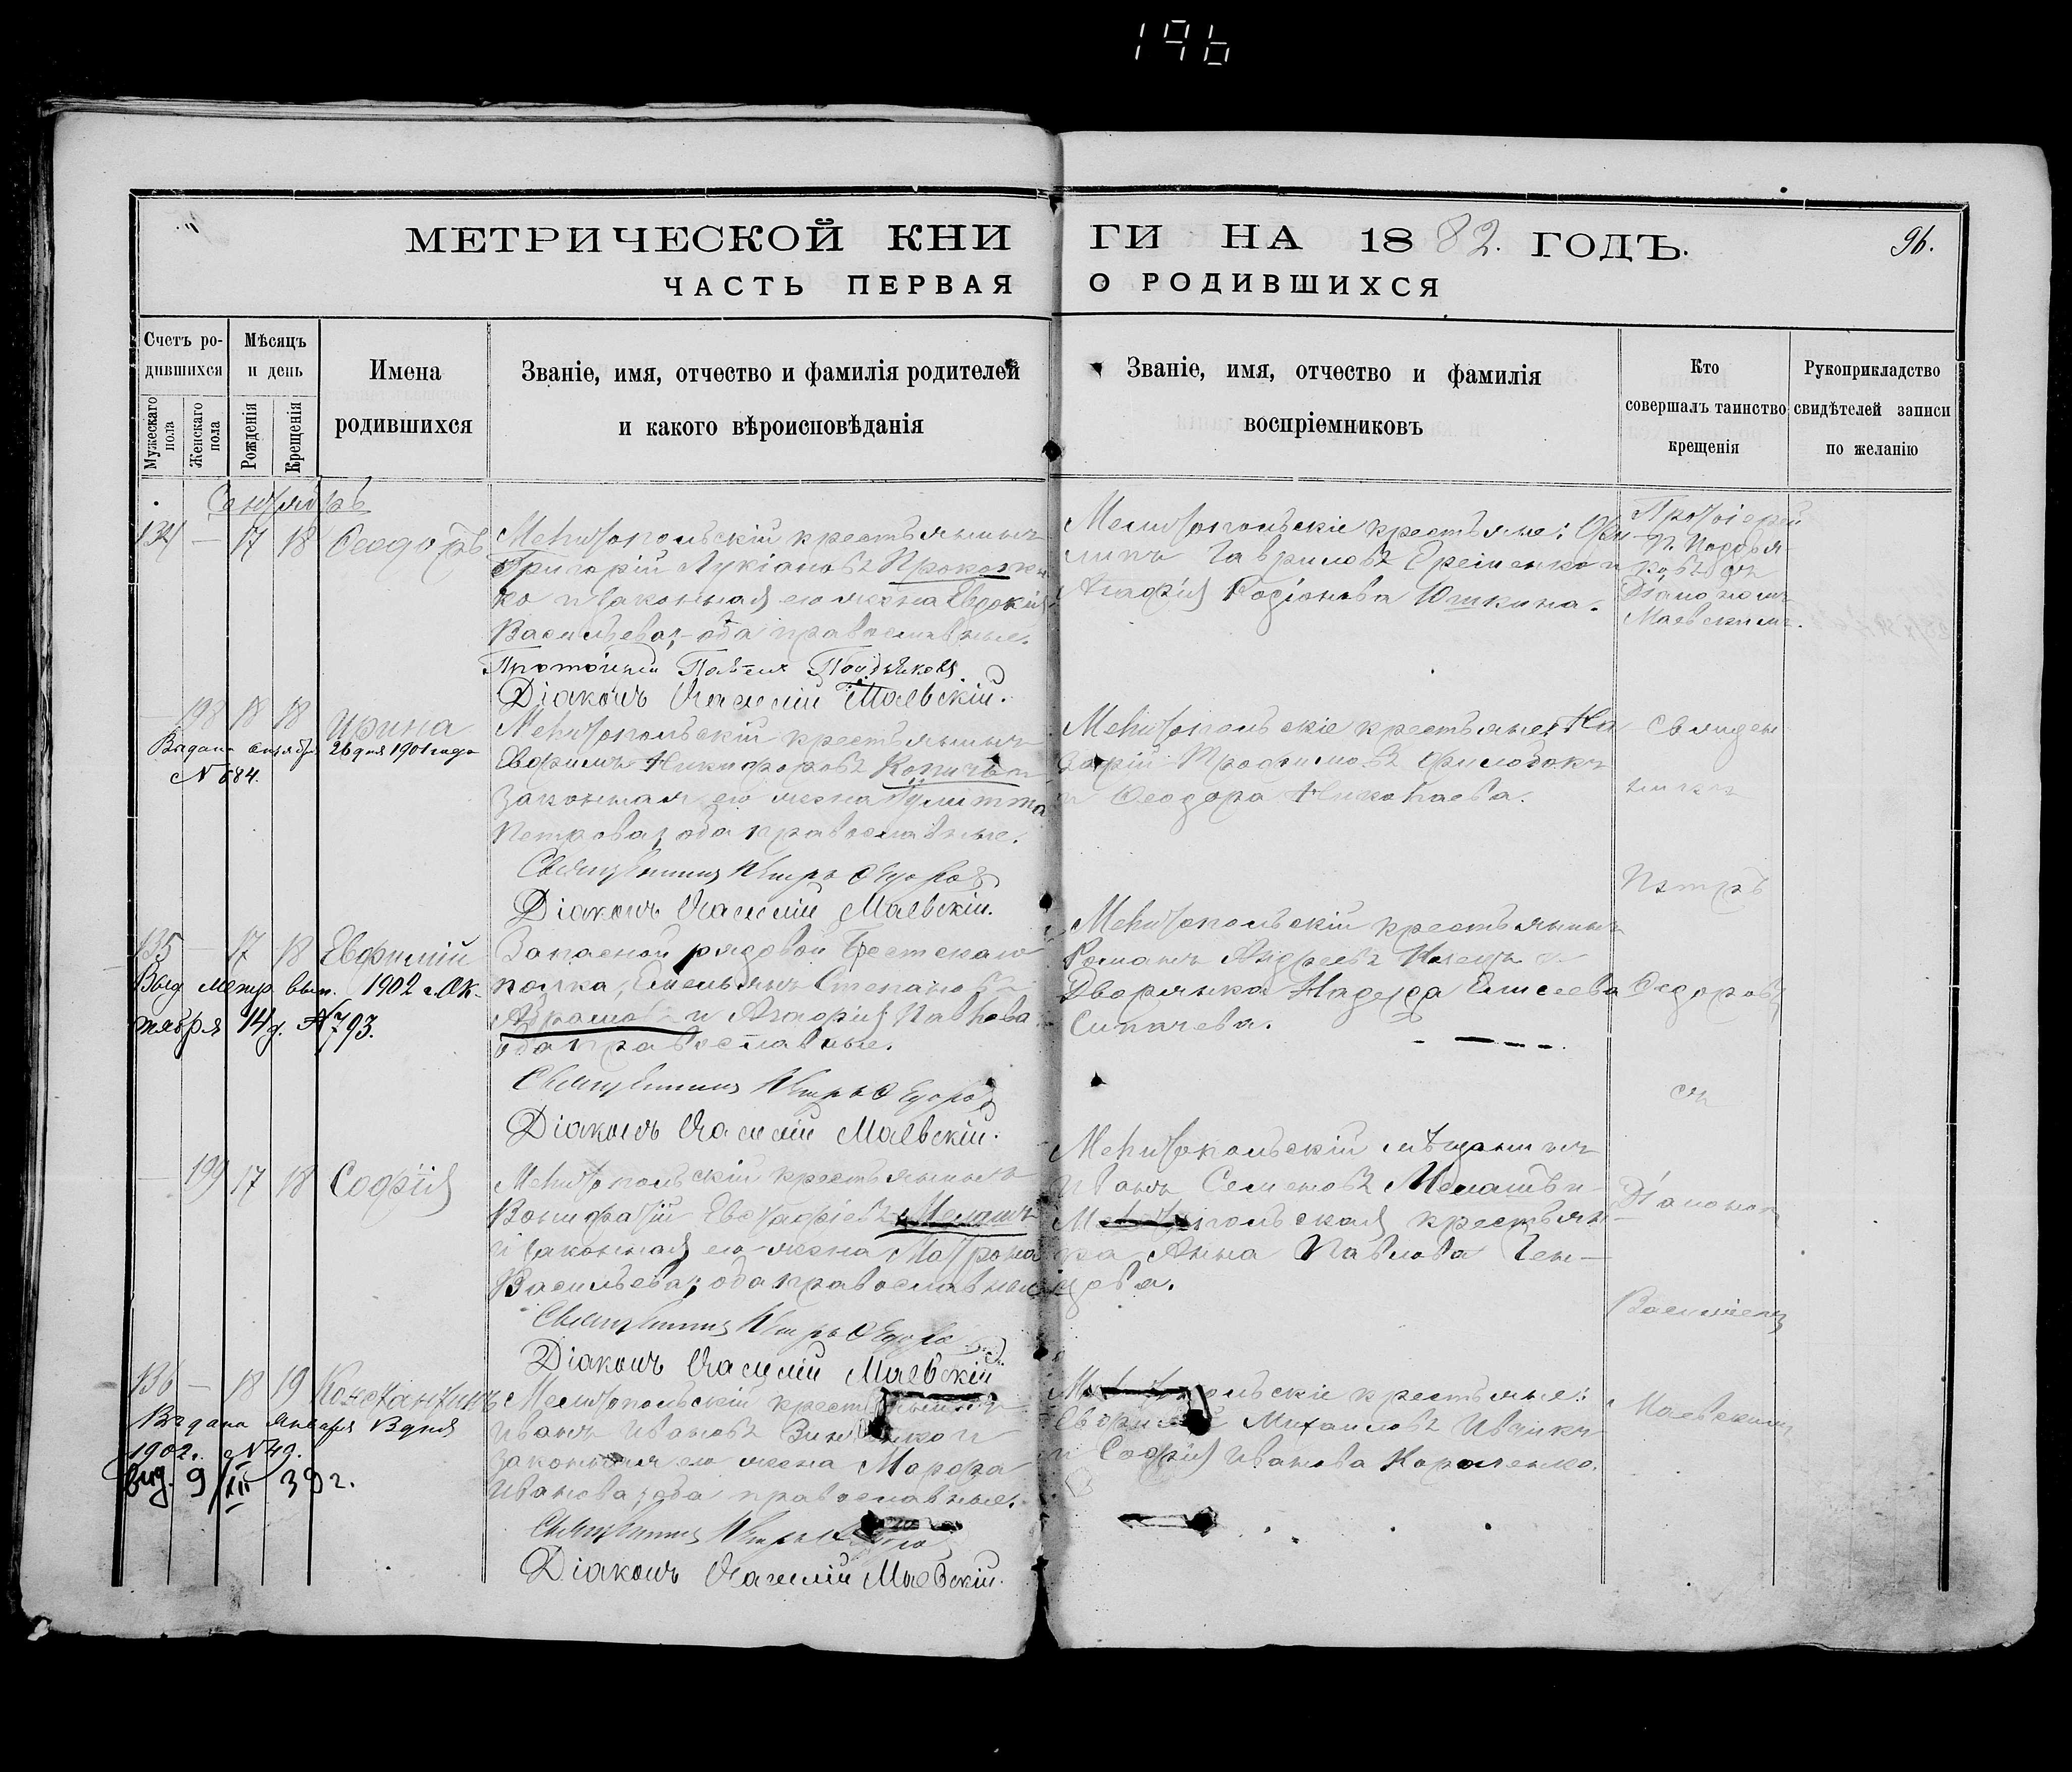 196
МЕТРИЧЕСКОЙ КНИ ГИ НА 1882. ГОДЪ.
96.
ЧАСТЬ ПЕРВАЯ О РОДИВШИХСЯ
Счетъ ро-
дившихся
Мужескаго пола
Женскаго пола
Мѣсяцъ
и день
Рожденія
Крещенія
Имена
родившихся
Званіе, имя, отчество и фамилія родителей
и какого вѣроисповѣданія
Званіе, имя, отчество и фамилія
воспріемниковъ
Кто
совершалъ таинство
крещенія
Рукоприкладство
свидѣтелей записи
по желанію
Сентябрь
134 — 17 18 Ѳеодоръ
Мелитопольскій крестьянинъ
Григорій Лукіановъ
ко и законная его жена Евдокія
Васильева, оба православные.
Протоіерей Павелъ Поддьяковъ
Діаконъ Василій Маевскій.
Мелитопольскіе крестьяне: Фи-
липъ Гавриловъ Грешенко и
Агафія Родіонова Юшкина.
Протоіерей
П. Поддья-
ковъ съ
Діакономъ
Маевскимъ.
— 198 18 18 Ирина
Выдана 26 дня 1901 года
№ 684.
Мелитопольскій крестьянинъ
Евфимъ Никифоровъ и
законная его жена Іулитта
Петрова, оба православные.
Священникъ Петръ Ѳедоровъ
Діаконъ Василій Маевскій.
Мелитопольскіе крестьяне: На-
зарій Трофимовъ
и Ѳеодора Николаева.
135 — 17 18 Евфимій
Выд. метр. вып. 1902 г. Ок-
тября 14 д. № 793.
Запасной рядовой Брестскаго
полка, Емельянъ Степановъ
Абрамовъ и Агафія Павлова
оба православные.
Священникъ Петръ Ѳедоровъ
Діаконъ Василій Маевскій.
Мелитопольскій крестьянинъ
Романъ Андреевъ и
Дворянка Надежда Елисеева
Сипачева.
— 199 17 18 Софія
Мелитопольскій крестьянинъ
Вонифатій Евграфіевъ
и законная его жена Матрона
Васильева, оба православные
Священникъ Петръ Ѳедоровъ
Діаконъ Василій Маевскій
Мелитопольскій мѣщанинъ
Иванъ Семеновъ и
Мелитопольская крестьян-
ка Анна Павлова Чен-
цова.
136 — 18 19 Константинъ
Выдана Января 8 дня
1902 г. № 49.
вид. 9/III 39 г.
Мелитопольскій крестьянинъ
Иванъ Ивановъ и
законная его жена Марфа
Иванова, оба православные.
Священникъ Петръ
Діаконъ Василій Маевскій.
Мелитопольскіе крестьяне:
Евфимій Михаиловъ
и Софія Иванова Короленко.
Священ-
никъ
Петръ
Ѳедоровъ
съ
Діакономъ
Василіемъ
Маевскимъ